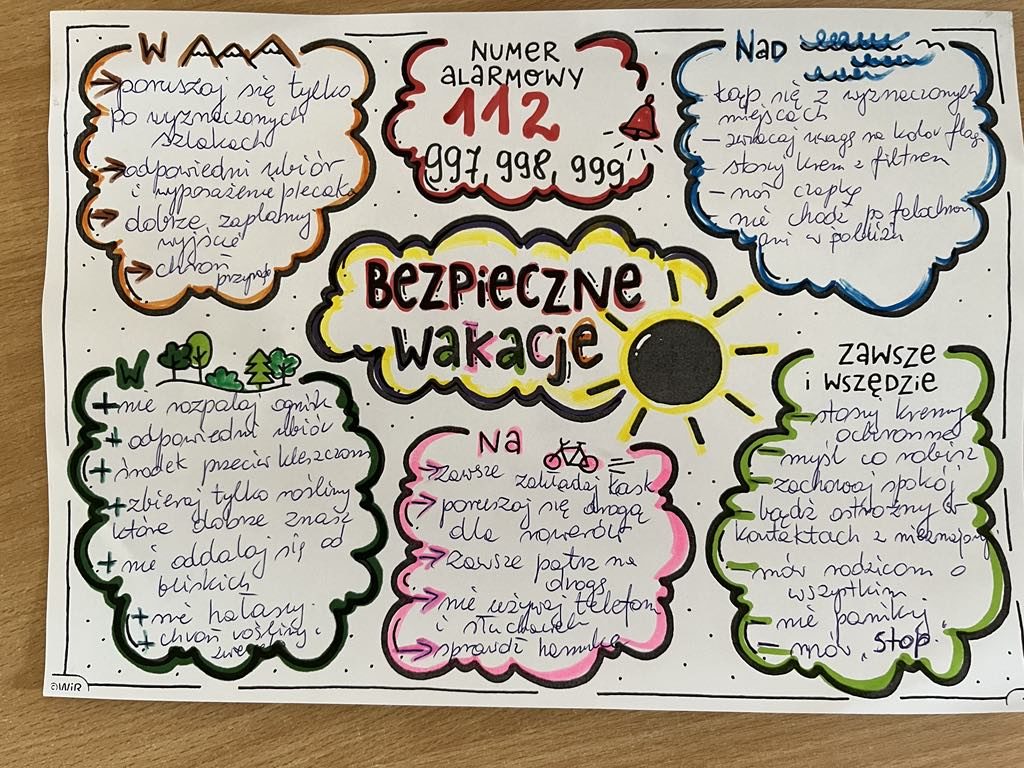 W
poruszaj się tylko
po wyznaczonych
szlakach
odpowiedni ubiór
i wyposażenie plecaka
dobrze zaplanuj
wyjście
chroń
przyrodę
NUMER
ALARMOWY
112
997, 998, 999
NAD
kąp się z wyznaczonych
miejscach
- zwracaj uwagę na kolor flag
- stosuj krem z filtrem
- noś czapkę
- nie chodź po falochron
ani w pobliżu
BEZPIECZNE
WAKACJE
W
+ nie rozpalaj ognisk
+ odpowiedni ubiór
+ środek przeciw kleszczom
+ zbieraj tylko rośliny
które dobrze znasz
+ nie oddalaj się od
bliskich
+ nie hałasuj
+ chroń rośliny i
NA
zawsze zakładaj kask
poruszaj się drogą
dla rowerów
zawsze patrz na
drogę
nie używaj telefonu
i słuchawek
sprawdź hamulce
ZAWSZE
i WSZĘDZIE
- stosuj kremy
ochronne
- myśl co robisz
- zachowaj spokój
- bądź ostrożny w
kontaktach z nieznajomy
- mów rodzicom o
wszystkim
- nie panikuj
- mów „Stop”
©WiR